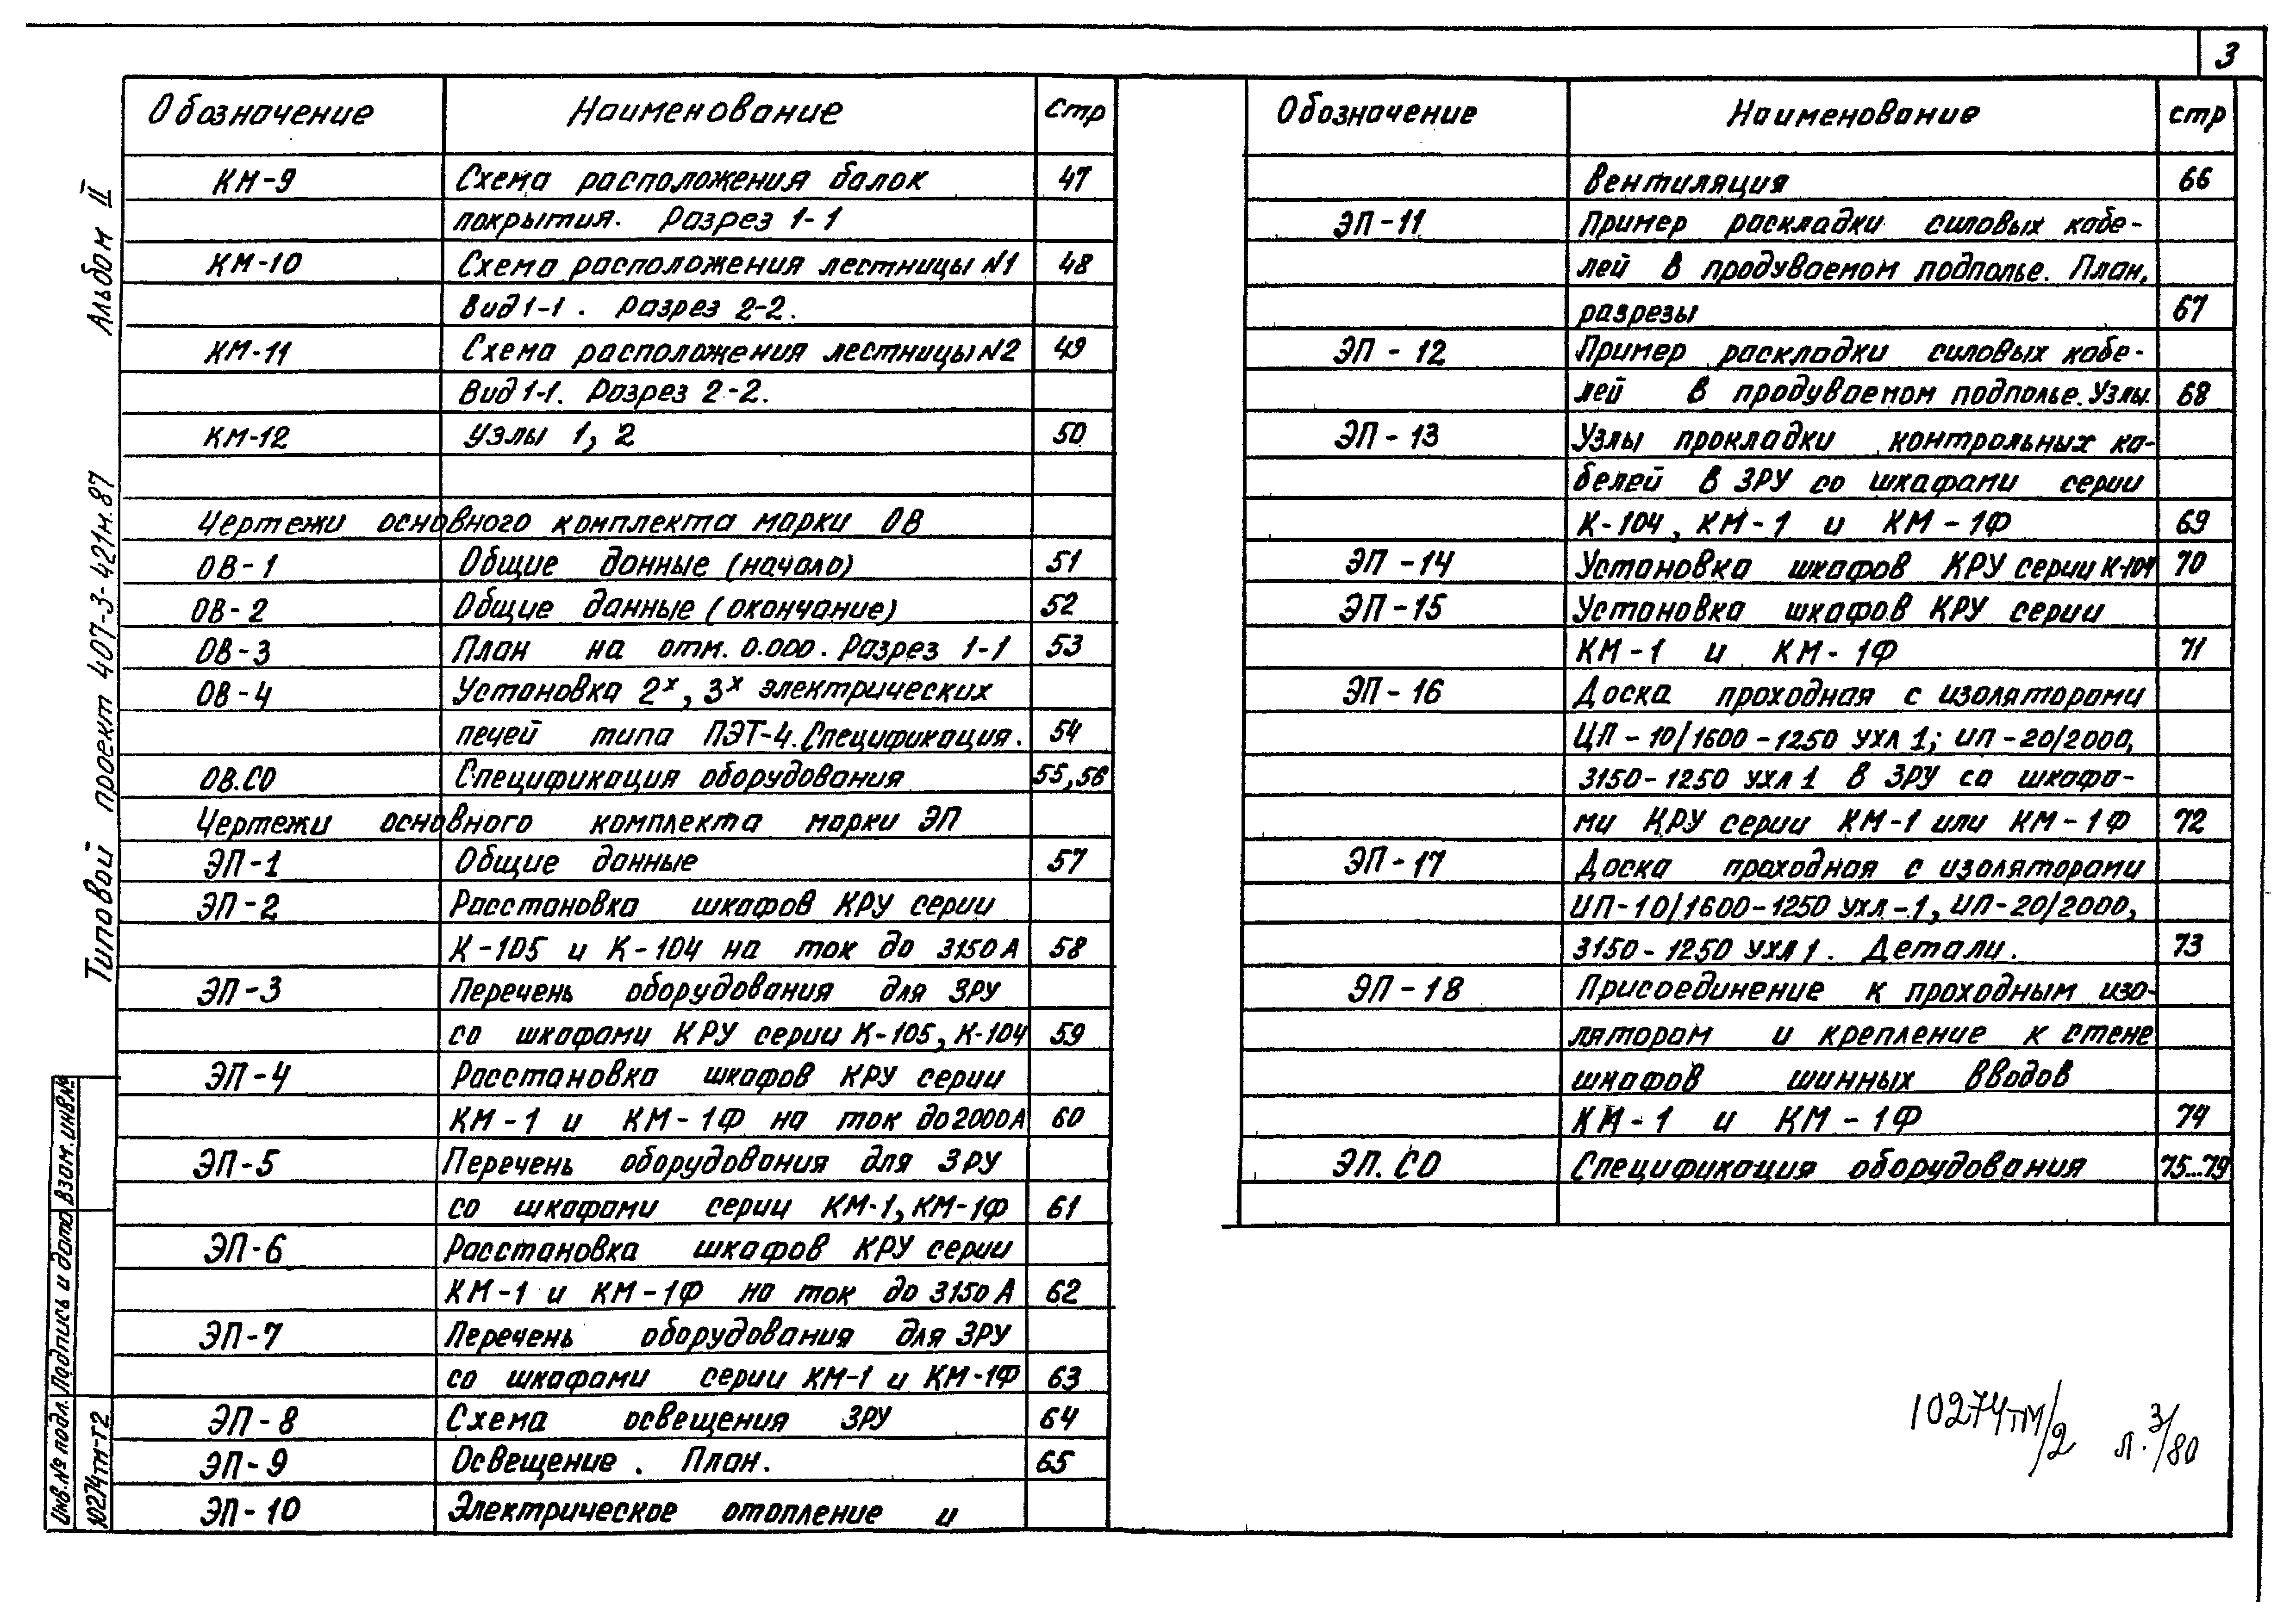 3
Обозначение Наименование Стр
КМ-9 Схема расположения балок 47
покрытия. Разрез 1-1
КМ-10 Схема расположения лестницы N1 48
Вид 1-1. Разрез 2-2.
КМ-11 Схема расположения лестницы N2 49
Вид 1-1. Разрез 2-2.
КМ-12 Узлы 1, 2 50
Чертежи основного комплекта марки ОВ
ОВ-1 Общие данные (начало) 51
ОВ-2 Общие данные (окончание) 52
ОВ-3 План на отм. 0.000. Разрез 1-1 53
ОВ-4 Установка 2х, 3х электрических
печей типа ПЭТ-4. Спецификация. 54
ОВ.СО Спецификация оборудования 55,56
Чертежи основного комплекта марки ЭП
ЭП-1 Общие данные 57
ЭП-2 Расстановка шкафов КРУ серии
К-105 и К-104 на ток до 3150 А 58
ЭП-3 Перечень оборудования для ЗРУ
со шкафами КРУ серии К-105, К-104 59
ЭП-4 Расстановка шкафов КРУ серии
КМ-1 и КМ-1Ф на ток до 2000А 60
ЭП-5 Перечень оборудования для ЗРУ
со шкафами серии КМ-1, КМ-1Ф 61
ЭП-6 Расстановка шкафов КРУ серии
КМ-1 и КМ-1Ф на ток до 3150 А 62
ЭП-7 Перечень оборудования для ЗРУ
со шкафами серии КМ-1 и КМ-1Ф 63
ЭП-8 Схема освещения ЗРУ 64
ЭП-9 Освещение. План. 65
ЭП-10 Электрическое отопление и
Обозначение Наименование стр
вентиляция 66
ЭП-11 Пример раскладки силовых кабе-
лей в продуваемом подполье. План,
разрезы 67
ЭП-12 Пример раскладки силовых кабе-
лей в продуваемом подполье. Узлы. 68
ЭП-13 Узлы прокладки контрольных ка-
белей в ЗРУ со шкафами серии
К-104, КМ-1 и КМ-1Ф 69
ЭП-14 Установка шкафов КРУ серии К-104 70
ЭП-15 Установка шкафов КРУ серии
КМ-1 и КМ-1Ф 71
ЭП-16 Доска проходная с изоляторами
ЦП-10/1600-1250 УХЛ 1; ИП-20/2000,
3150-1250 УХЛ 1 в ЗРУ со шкафа-
ми КРУ серии КМ-1 или КМ-1Ф 72
ЭП-17 Доска проходная с изоляторами
ИП-10/1600-1250 УХЛ-1, ИП-20/2000,
3150-1250 УХЛ 1. Детали. 73
ЭП-18 Присоединение к проходным изо-
ляторам и крепление к стене
шкафов шинных вводов
КМ-1 и КМ-1Ф 74
ЭП.СО Спецификация оборудования 75...79
Типовой проект 407-3-421м.87 Альбом II
Инв.№ подл. Подпись и дата Взам.инв№
10274тм-т2
10274тм/2 л.3/80